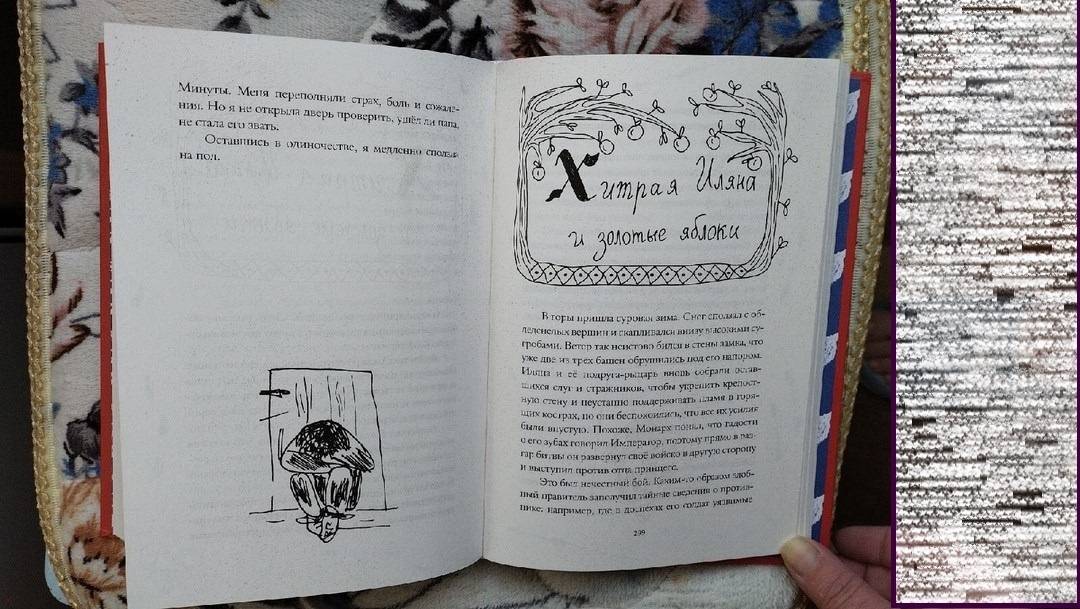 Минуты. Меня переполняли страх, боль и сожале-
ния. Но я не открыла дверь проверить, ушёл ли папа,
не стала его звать.
Оставшись в одиночестве, я медленно сползла
на пол.
Хитрая Иляна
и золотые яблоки
В горы пришла суровая зима. Снег сползал с об-
леденелых вершин и скапливался внизу высокими су-
гробами. Ветер так неистово бился в стены замка, что
уже две из трех башен обрушились под его напором.
Иляна и её подруга-рыцарь вновь собрали остав-
шихся слуг и стражников, чтобы укрепить крепост-
ную стену и неустанно поддерживать пламя в горя-
щих кострах, но они беспокоились, что все их усилия
были впустую. Похоже, Монарх понял, что гадости
о его зубах говорил Император, поэтому прямо в раз-
гар битвы он развернул своё войско в другую сторону
и выступил против отца принцесс.
Это был нечестный бой. Каким-то образом злоб-
ный правитель заполучил тайные сведения о против-
нике, например, где в доспехах его солдат уязвимые
209